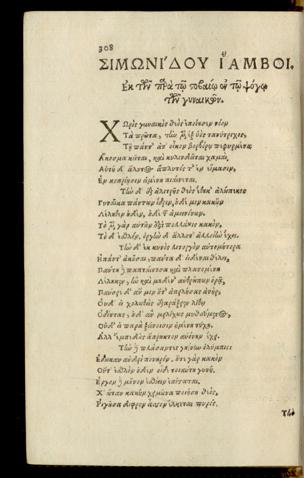 308
ΣΙΜΩΝΙ΄ΔΟΥ Ι῎ΑΜΒΟΙ.
Ἐκ τῶν παρὰ τῷ στοβαίῳ ἐν τῷ ψόγῳ
τῶν γυναικῶν.
Χωρὶς γυναικὸς θεὸς ἐποίησεν νόον
Τὰ πρῶτα, τὴν μὲν ἐξ ὑὸς τανύτριχος,
Τῇ πάντ' ἀν' οἶκον βορβόρῳ πεφυρμένα
Ἄκοσμα κεῖται, καὶ κυλινδεῖται χαμαί,
Αὐτὴ δ' ἄλουτος ἀπλύτοις τ' ἐν εἵμασιν,
Ἐν κοπρίῃσιν ἡμένη πιαίνεται.
Τὴν δ' ἐξ ἀλιτρῆς θεὸς ἔθηκ' ἀλώπεκος
Γυναῖκα πάντων ἴδριν, οὐδέ μιν κακῶν
Λέληθεν οὐδὲν, οὐδὲ τῶν ἀμεινόνων.
Τὸ μὲν γὰρ αὐτῶν εἶπε πολλάκις κακόν,
Τὸ δ' ἐσθλόν, ὀργὴν δ' ἄλλοτ' ἀλλοίην ἔχει.
Τὴν δ' ἐκ κυνὸς λιτοργὸν αὐτομήτορα
Ἣ πάντ' ἀκοῦσαι, πάντα δ' εἰδέναι θέλει,
Πάντη παπταίνουσα καὶ πλανωμένη
Λέληκεν, ἢν καὶ μηδέν' ἀνθρώπων ὁρᾷ,
Παύσει δ' ἂν μιν οὔτ' ἀπειλήσας ἀνὴρ,
Οὐδ' εἰ χολωθεὶς ἐξαράξειεν λίθῳ
Ὀδόντας, οὐδ' ἂν μειλίχως μυθούμενος,
Οὐδ' εἰ παρὰ ξείνοισιν ἡμένη τύχῃ.
Ἀλλ' ἐμπέδως ἄπρηκτον αὐονὴν ἔχει.
Τὴν δὲ πλάσαντες γηΐνην ὀλύμπιοι
Ἔδωκαν ἀνδρὶ πηρόν, οὔτε γὰρ κακὸν
Οὔτ' ἐσθλὸν οὐδὲν οἶδε τοιαύτη γυνή.
Ἔργον δὲ μοῦνον ἐσθίειν ἐπίσταται.
Χ' ὅταν κακὸν χειμῶνα ποιήσῃ θεὸς,
Ῥιγῶσα δίφρον ἆσσον ἕλκεται πυρός.
Τὴν